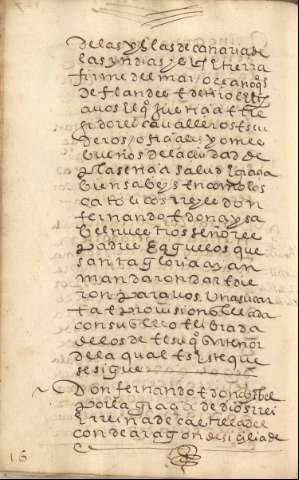 de las yslas de canaria de
las yndias yslas e tierra
firme del mar oceano
de flandes e de tirol
justicia e Re
gidores cavalleros escu
deros oficiales y omes
buenos de la ciudad de
plasencia salud e gracia
bien sabeys en como los
catolicos reyes don
fernando e dona ysa
bel nuestros señores
padre e aguelos que
santa gloria ayan
mandaron dar e die
ron para vos una su car
ta e provision sellada
con su sello e librada
de los de
de la qual es este que
se sigue
Don fernando e dona ysabel
por la gracia de dios rei
e rreina de castilla de
con de aragon de sicilia de
16